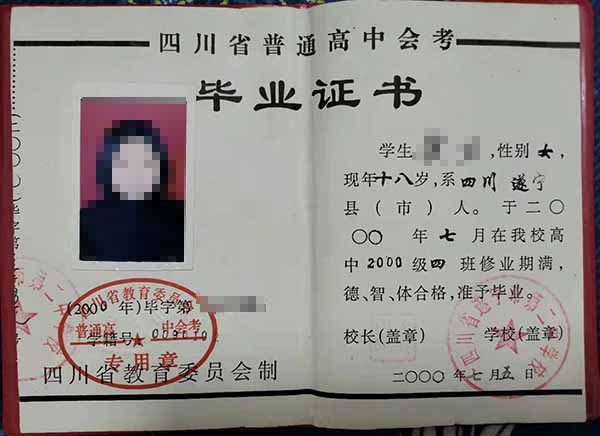 四川省普通高中会考
毕业证书
学生 ,性别女,
现年十八岁,系四川遂宁
县(市)人。于二〇
〇〇年七月在我校高
中2000级四班修业期满,
德、智、体合格,准予毕业。
校长(盖章) 学校(盖章)
二〇〇〇年七月五日
(2000年)毕字第
学籍号
四川省教育委员会制
四川省教育委员会
普通高中会考
专用章